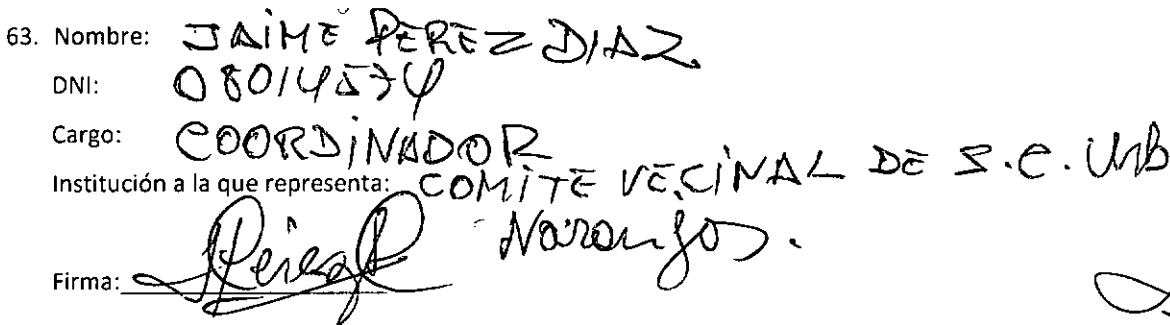 63. Nombre: JAIME PEREZ DIAZ
DNI: 08014574
Cargo: COORDINADOR
Institución a la que representa: COMITE VECINAL DE S.C. Urb
Naranjos.
Firma: